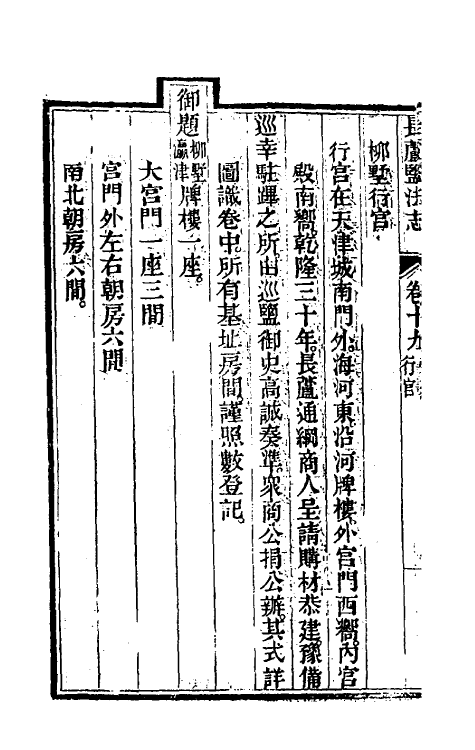 長蘆鹽法志　卷十九　行宮
柳墅行宮
行宮在天津城南門外海河東沿河牌樓外宮門西嚮內宮
殿南嚮乾隆三十年長蘆通綱商人呈請購材恭建豫備
巡幸駐蹕之所由巡鹽御史高誠奏準衆商公捐公辦其式詳
圖識卷中所有基址房間謹照數登記
御題柳墅瀛津牌樓一座
大宮門一座三間
宮門外左右朝房六間
南北朝房六間